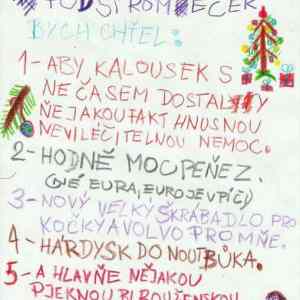 POD STROMEČEK
BYCH CHTĚL:
1- ABY KALOUSEK S
NEČASEM DOSTALY
ŇEJAKOU FAKT HNUSNOU
NEVILÉČITELNOU NEMOC.
2- HODNĚ MOC PEŇEZ.
(NÉ EURA, EURO JE V PIČI)
3- NOVÝ VELKÝ ŠKRABADLO PRO
KOČKY A VOLVO PRO MŇE.
4- HÁRDYSK DO NOUTBŮKA.
5- A HLAVŇE NĚJAKOU
PJEKNOU BLBOUŽENSKOU